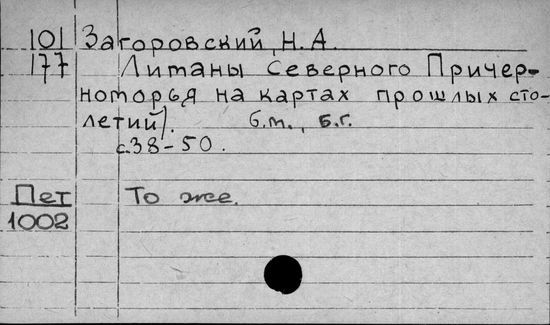 101 Загоровский, Н. А.
177 Лиманы Северного Причер-
номорья на картах прошлых сто-
летий).  б.м., б.г.
с.38-50.
Пет То же.
1002